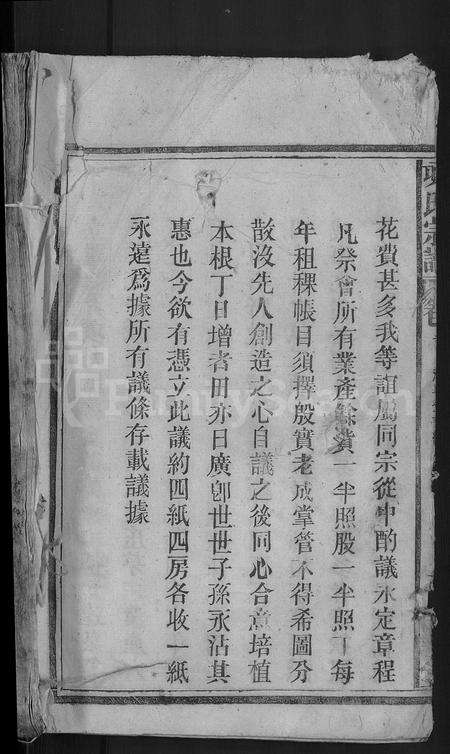 花費甚多我等誼屬同宗從中酌議永定章程
凡祭會所有業產餘費一半照股一半照丁每
年租稞帳目須擇殷實老成掌管不得希圖分
散沒先人創造之心自議之後同心合意培植
本根丁日增者田亦日廣卽世世子孫永沾其
惠也今欲有憑立此議約四紙四房各收一紙
永遠爲據所有議條存載議據
氏宗譜